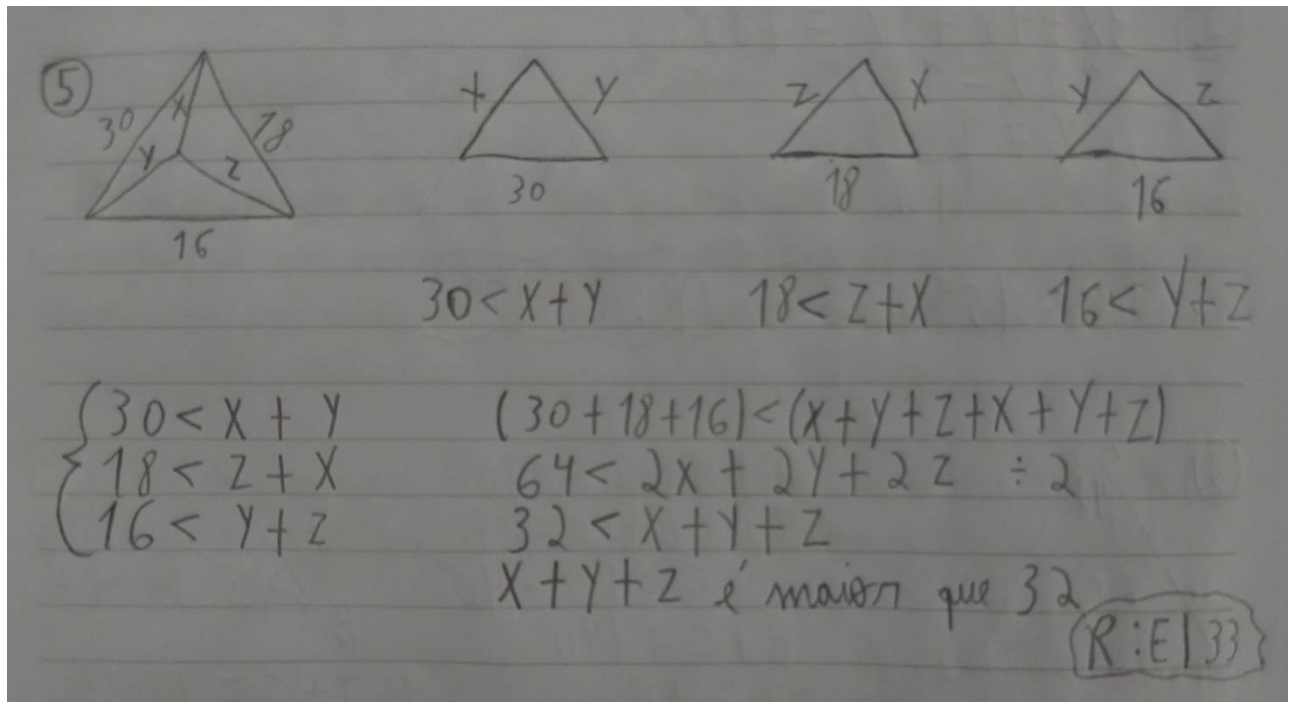 5
30 X Y 18 Z
16
X Y
30
Z X
18
Y Z
16
30 < X + Y 18 < Z + X 16 < Y + Z
{ 30 < X + Y (30 + 18 + 16) < (X + Y + Z + X + Y + Z)
18 < Z + X 64 < 2X + 2Y + 2Z ÷ 2
16 < Y + Z 32 < X + Y + Z
X + Y + Z é maior que 32
R: E | 33